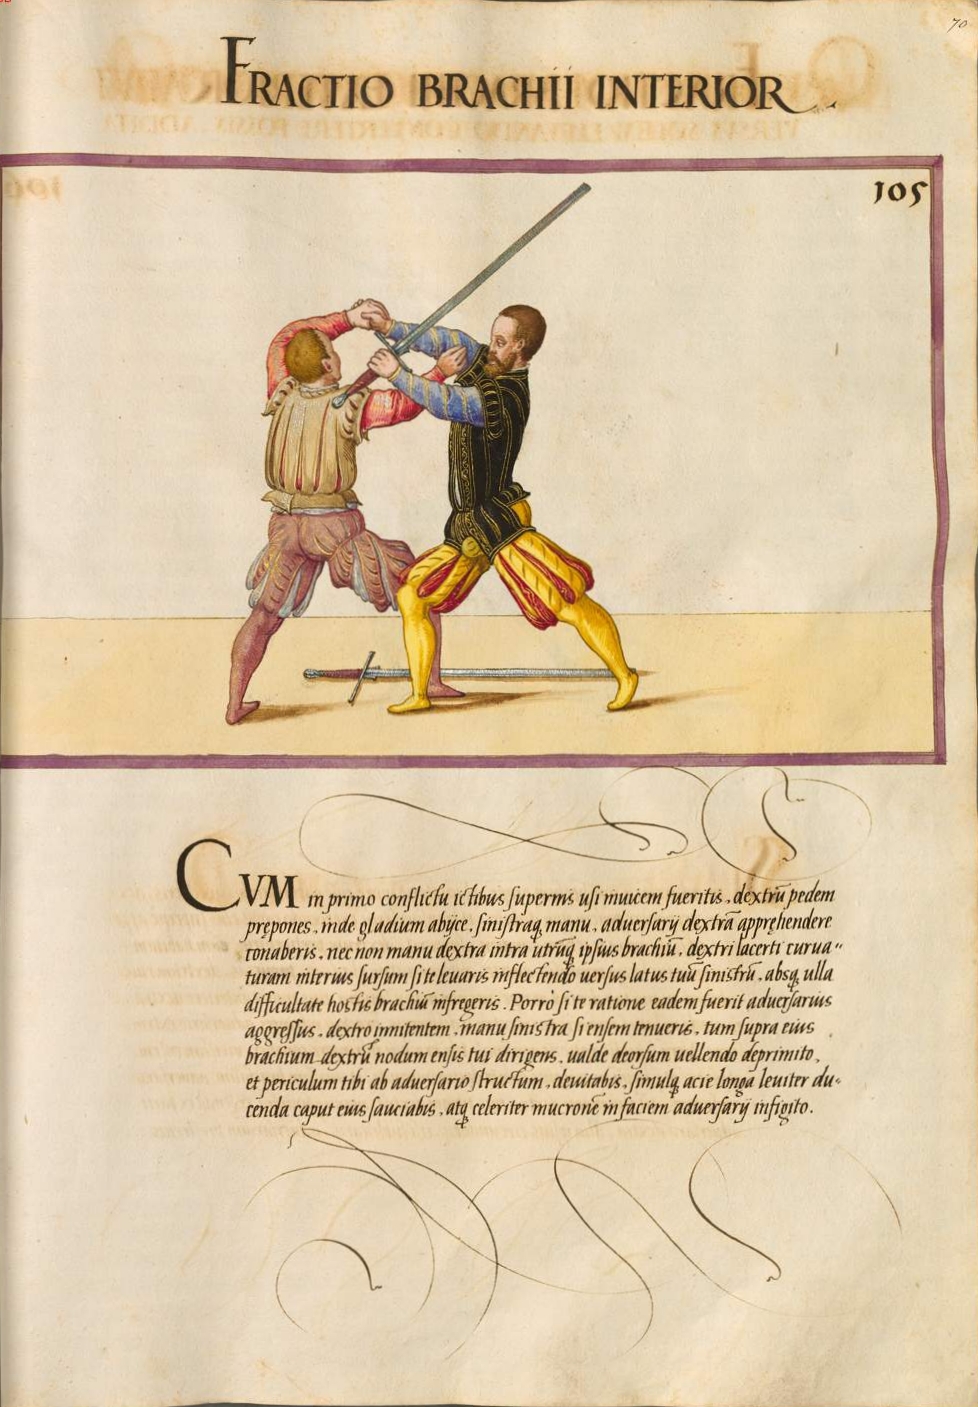 70
FRACTIO BRACHII INTERIOR
105
CVM in primo conflictu ictibus supernis usi inuicem fueritis, dextrũ pedem
prępones, inde gladium abijce, sinistraq̨ manu, aduersarij dextrã appręhendere
conaberis, nec non manu dextra intra utrũq̨ ipsius brachiũ, dextri lacerti curua„
turam interius sursum si te leuaris inflectendo uersus latus tuũ sinistrũ, absq̨ ulla
difficultate hostis brachiũ infregeris. Porrò si te ratione eadem fuerit aduersarius
aggressus, dextro innitentem, manu sinistra si ensem tenueris, tum supra eius
brachium dextrũ nodum ensis tui dirigens, ualde deorsum uellendo deprimito,
et periculum tibi ab aduersario structum, deuitabis, simulq̨ acie longa leuiter du„
cenda caput eius sauciabis, atq̨ celeriter mucronẽ in faciem aduersarij infigito.